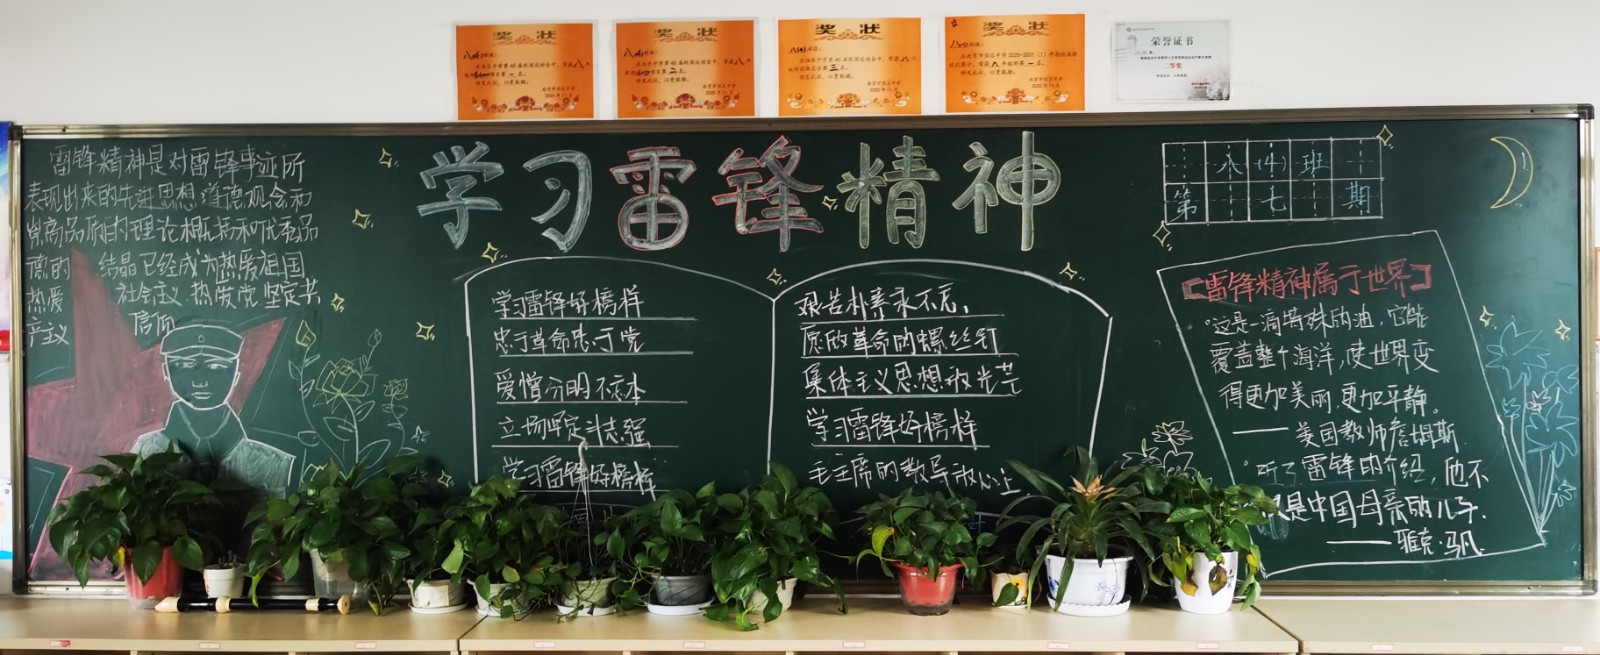 奖状
奖状
奖状
奖状
荣誉证书
学习雷锋精神
八(4)班
第七期
雷锋精神是对雷锋事迹所
表现出来的先进思想道德观念和
崇高品质的理论概括和优秀品
德的结晶已经成为热爱祖国
热爱社会主义热爱党坚定共
产主义信仰
学习雷锋好榜样
忠于革命忠于党
爱憎分明不忘本
立场坚定斗志强
学习雷锋好榜样
艰苦朴素永不忘,
愿做革命的螺丝钉
集体主义思想放光芒
学习雷锋好榜样
毛主席的教导放心上
【雷锋精神属于世界】
"这是一滴特殊的油,它能
覆盖整个海洋,使世界变
得更加美丽,更加平静。
——美国教师詹姆斯
"听了雷锋的介绍,他不
只是中国母亲的儿子.
——雅克·马凡